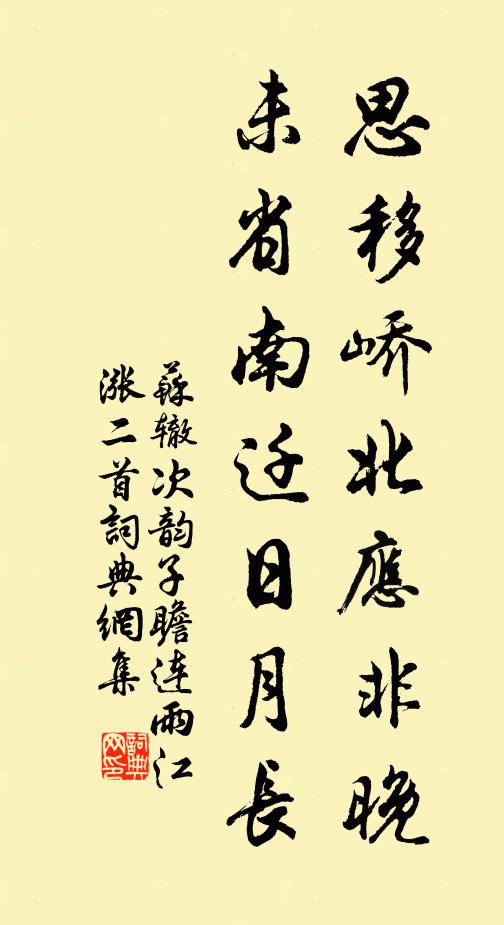 思移峤北應非晚
未省南迁日月長
蘇辙次韵子瞻连雨江
涨二首詞典網集
詞典
网印